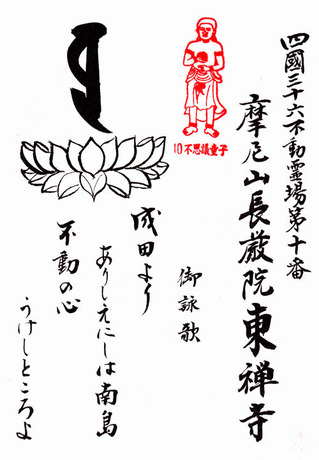 四國三十六不動霊場第十番
摩尼山長厳院東禅寺
10不思議童子
御詠歌
成田より
ありしえにしは南島
不動の心
うけしところよ